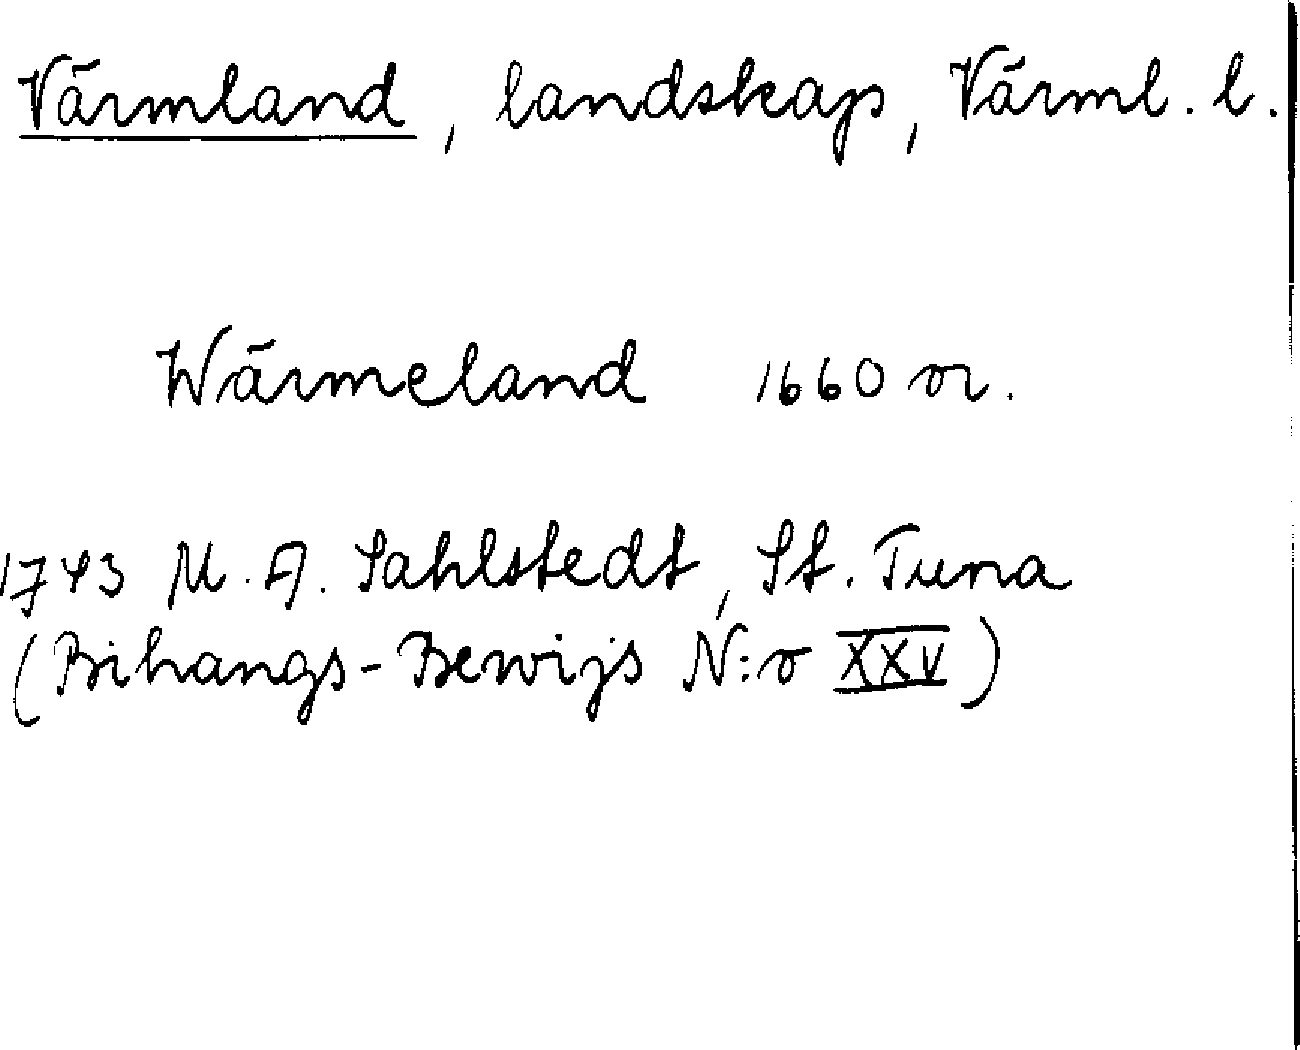 Värmland, landskap, Värml. l.
Wärmeland 1660 or.
1743 M. A. Sahlstedt, St. Tuna
(Bihangs-Bewijs N:o XXV)